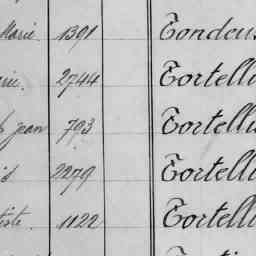 Marie. 1391 Tondeu
rie. 2744 Tortelli
jean 793 Tortelli
2279 Tortelli
tiste. 1122 Tortelli